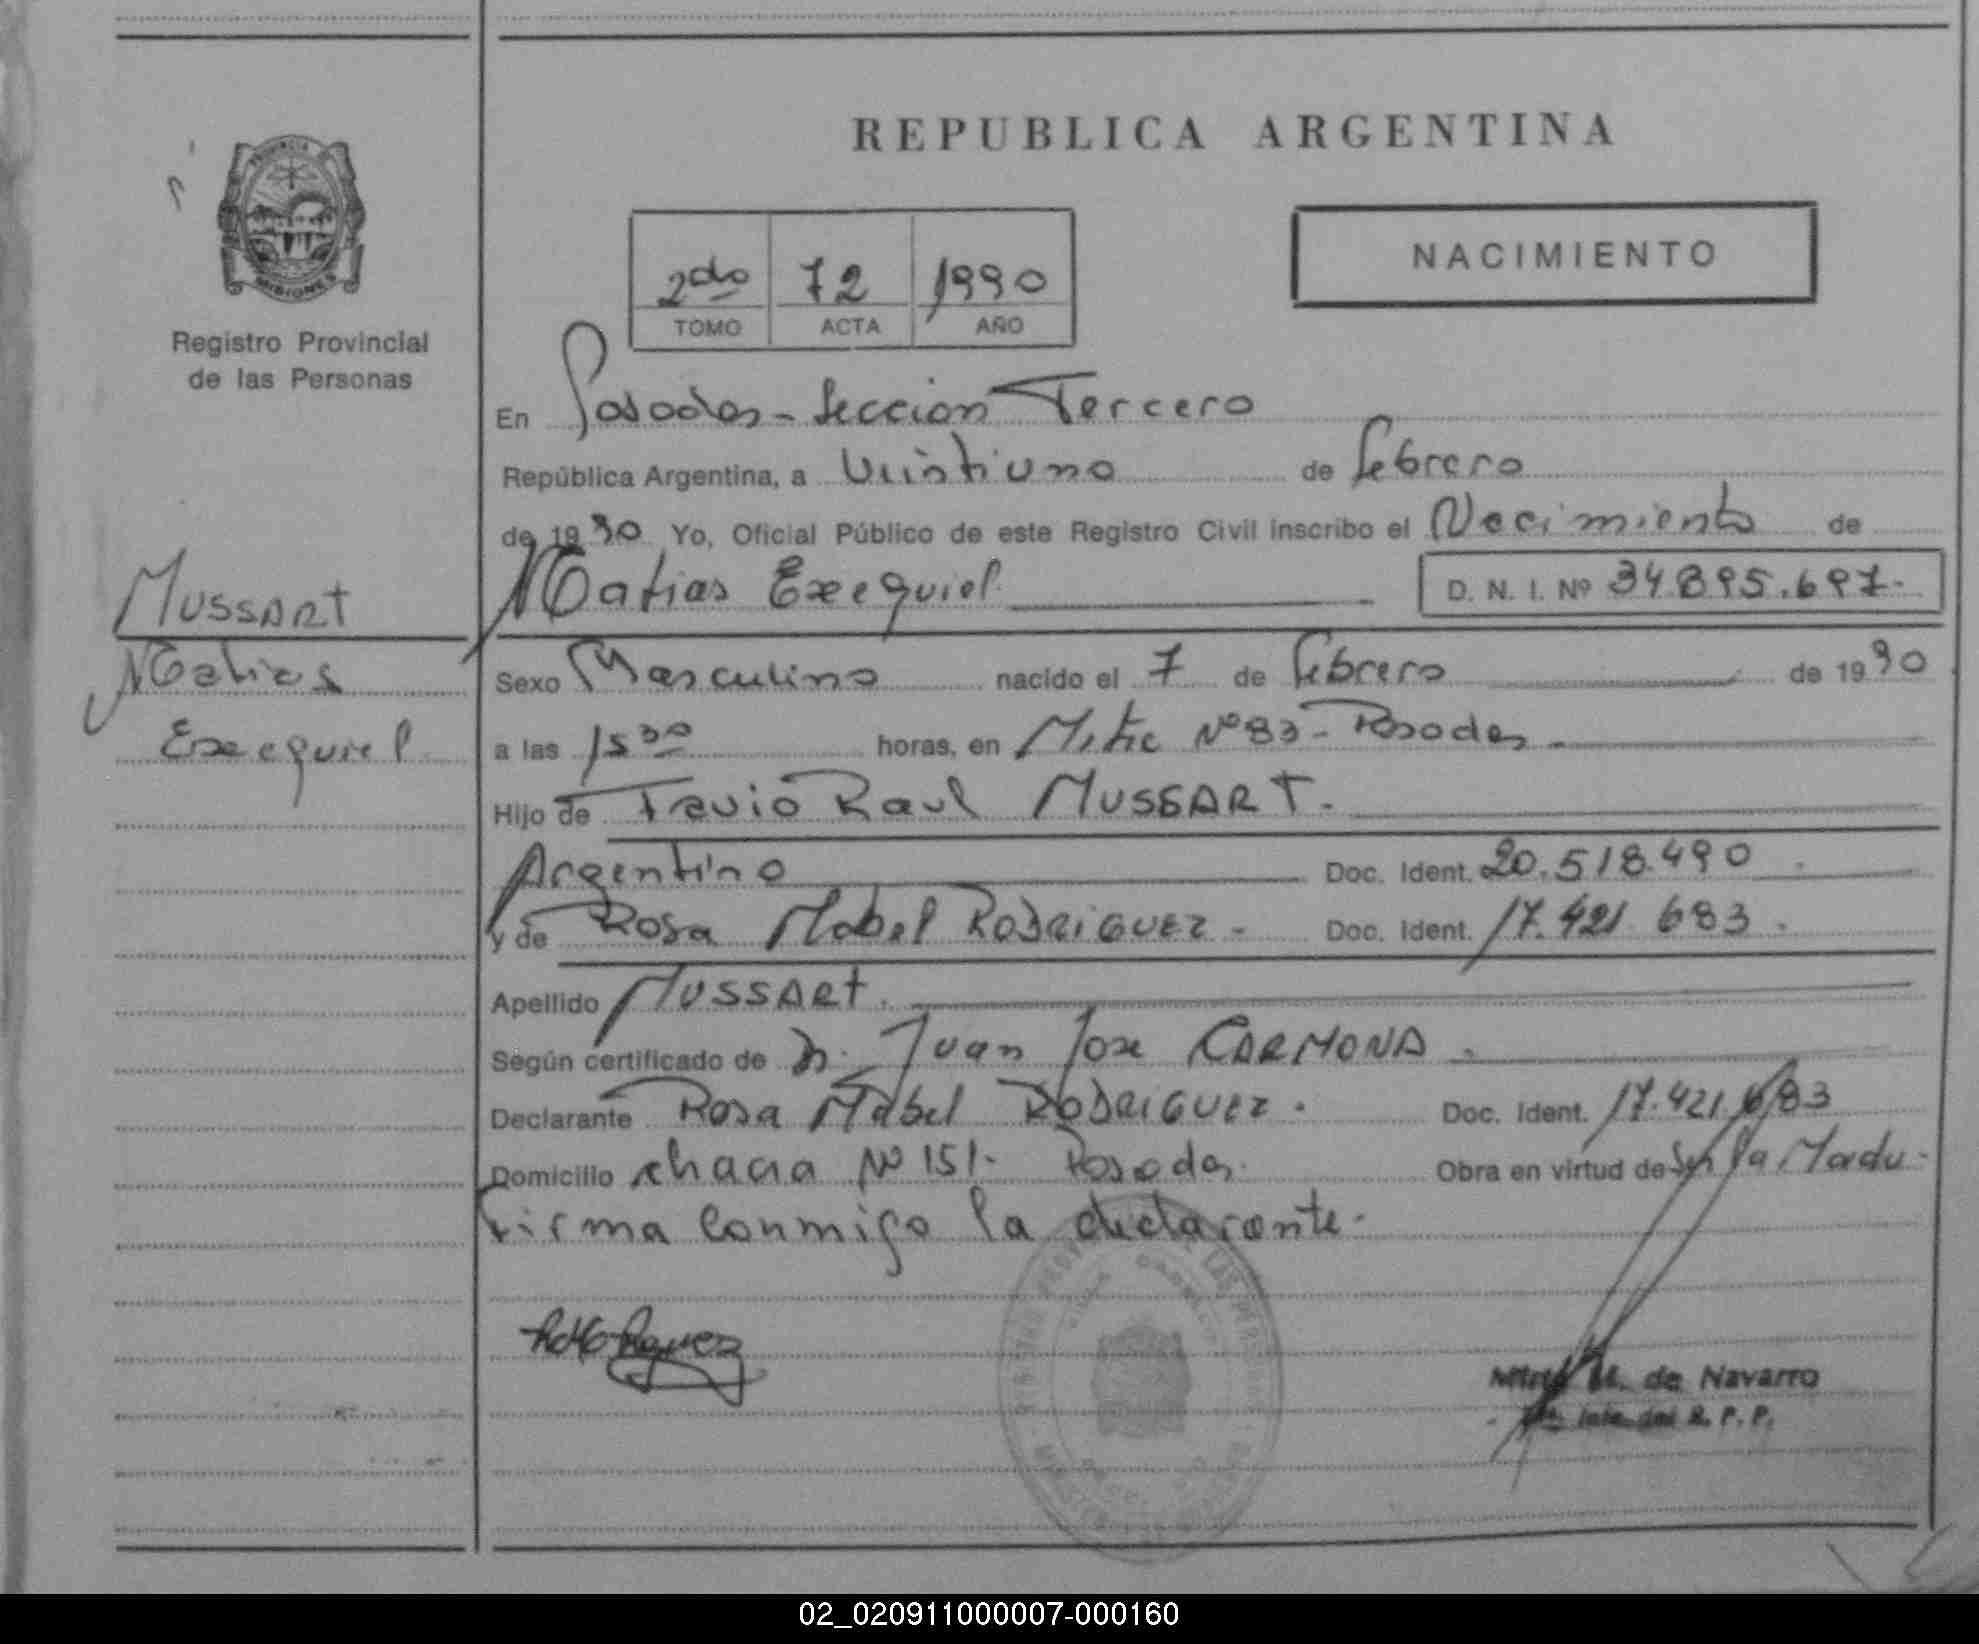 REPUBLICA ARGENTINA
NACIMIENTO
2do 72 1990
TOMO ACTA AÑO
PROVINCIA
MISIONES
Registro Provincial
de las Personas
En Posadas - Sección Tercera
República Argentina, a Veintiuno de febrero
de 1990 Yo, Oficial Público de este Registro Civil inscribo el Nacimiento de
Matias Exequiel D. N. I. Nº 34.895.697.-
MUSSART
Matias
Exequiel
Sexo Masculino nacido el 7 de febrero de 1990
a las 15 30 horas, en Mitre Nº 83 - Posadas -
Hijo de Favio Raul MUSSART.
Argentino Doc. Ident. 20.518.490
y de Rosa Mabel RODRIGUEZ - Doc. Ident. 17.421.683.
Apellido MUSSART.
Según certificado de Dr. Juan Jose CARMONA.
Declarante Rosa Mabel RODRIGUEZ. Doc. Ident. 17.421.683
Domicilio chacra Nº 151- Posadas. Obra en virtud de Ser la Madre.
Firma conmigo la declarante.
M. de Navarro
del R. P. P.
02_020911000007-000160